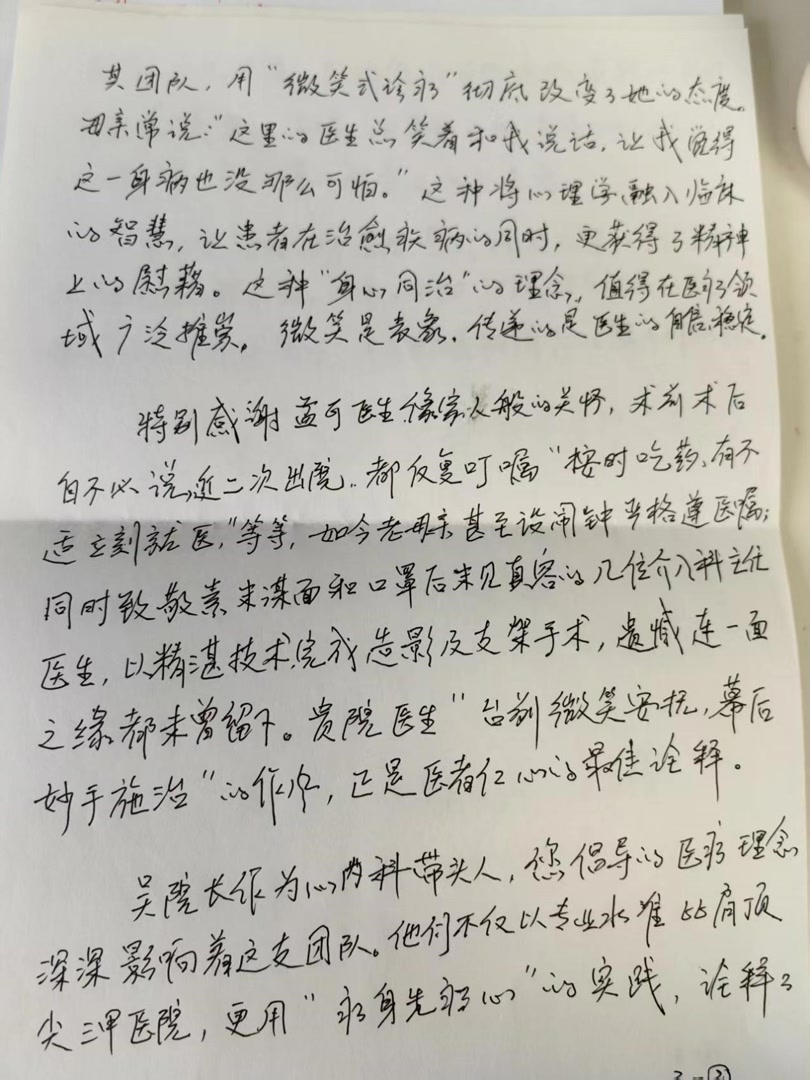 其团队，用“微笑式诊疗”彻底改变了她的态度。
母亲常说：“这里的医生总笑着和我说话，让我觉得
这一身病也没那么可怕。”这种将心理学融入临床
的智慧，让患者在治愈疾病的同时，更获得了精神
上的慰藉。这种“身心同治”的理念，值得在医疗领
域广泛推崇。微笑是表象，传递的是医生的自信稳定。
特别感谢孟可医生像家人般的关怀，术前术后
自不必说，近二次出院，都反复叮嘱“按时吃药、有不
适立刻就医，”等等，如今老母亲甚至设闹钟严格遵医嘱；
同时致敬素未谋面和口罩后未见真容的几位介入科主任
医生，以精湛技术完成造影及支架手术，遗憾连一面
之缘都未曾留下。贵院医生“台前微笑安抚，幕后
妙手施治”的作风，正是医者仁心的最佳诠释。
吴院长作为心内科带头人，您倡导的医疗理念
深深影响着这支团队。他们不仅以专业水准比肩顶
尖三甲医院，更用“疗身先疗心”的实践，诠释了